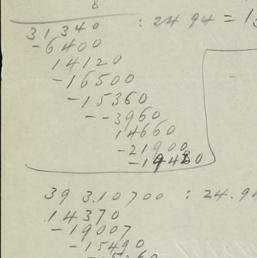 8
31340 : 2494 = 1
-6400
14120
-16500
-15360
--3960
14660
-21900
-19480
393.10700 : 24.94
14370
-19007
-15490